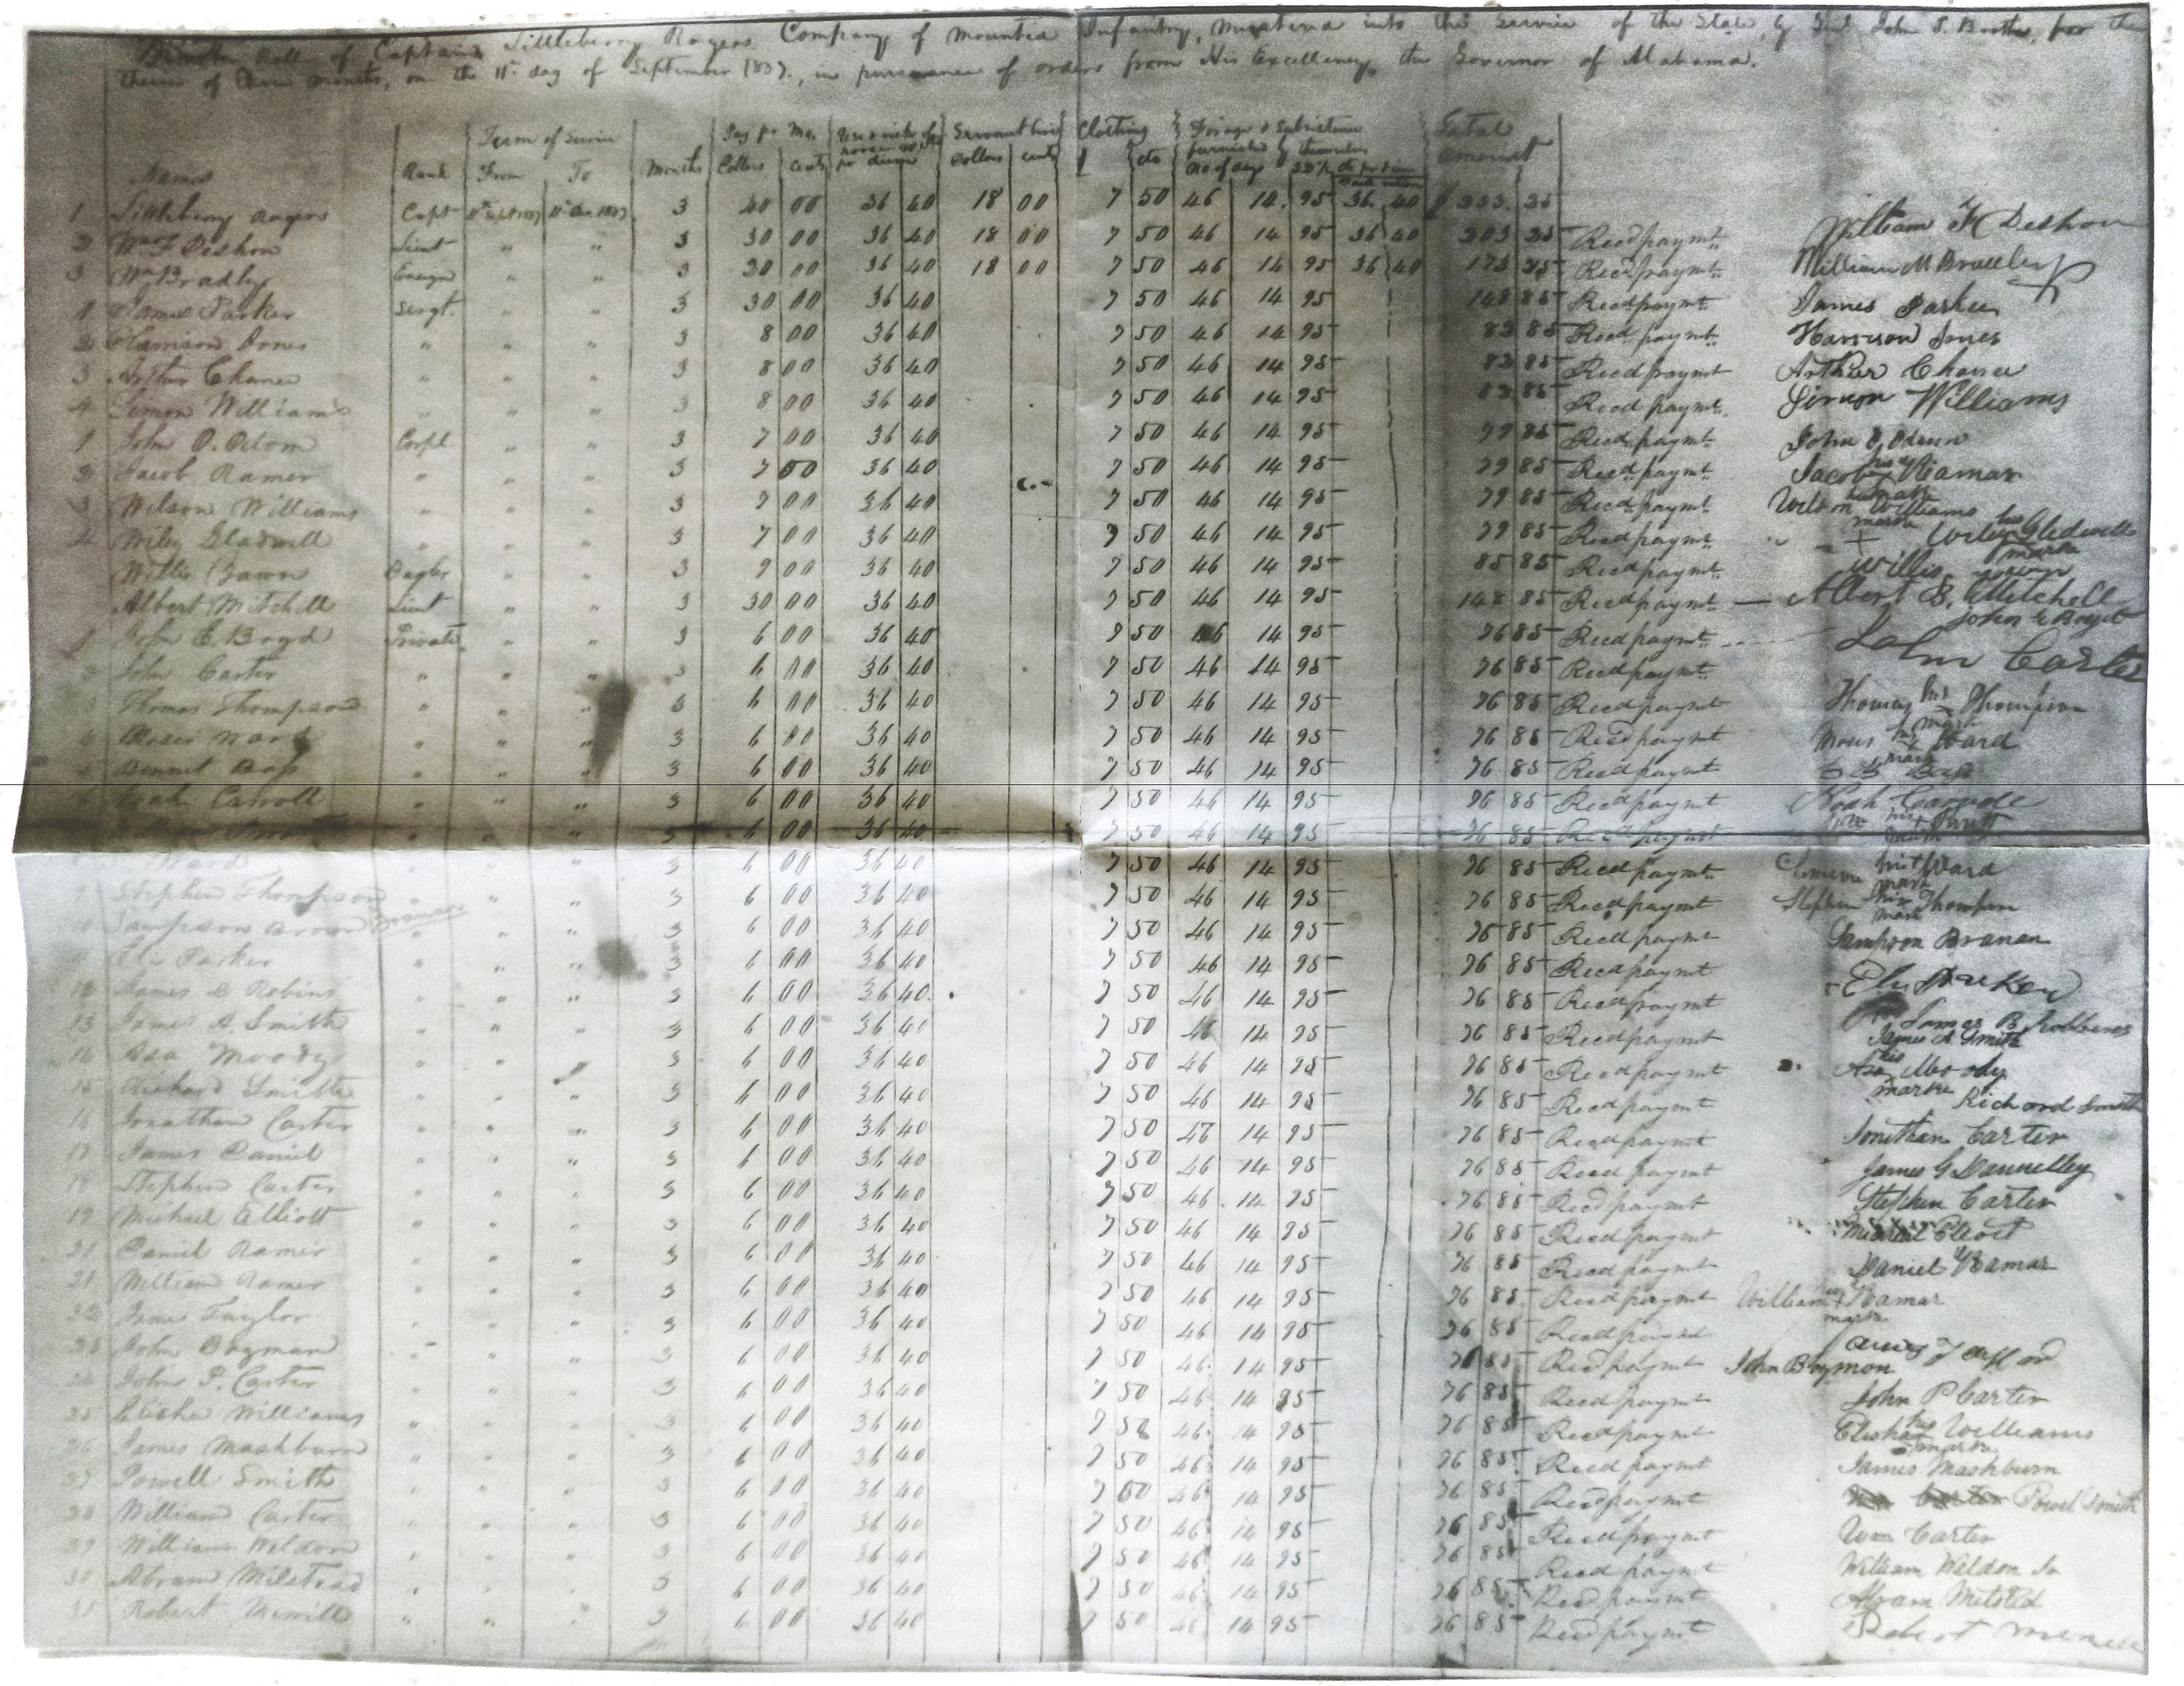 Muster Roll of Captain Littleberry Rogers Company of Mounted Infantry, Mustered into the Service of the State, by John S. for the
term of three months, on the 11th day of September 1837, in pursuance of orders from His Excellency the Governor of Alabama.
Term of Service Pay pr Mo. Use & risk of Servant hire Clothing Forage & Subsistence Total
horse pr diem furnished by themselves amount
Names Rank From To Months Dollars cents Dollars cents cts No of days
1 Littleberry Rogers Capt 3 40 00 36 40 18 00 7 50 46 14 95 36 40 233 25
2 Wm F Deshon Lieut " " 3 30 00 36 40 18 00 7 50 46 14 95 36 40 203 25 Recd paymt William F Deshon
3 Wm Bradly Ensign " " 3 20 00 36 40 18 00 7 50 46 14 95 36 40 173 25 Recd paymt William M Bradley
1 James Parker Sergt. " " 3 30 00 36 40 7 50 46 14 95 148 85 Recd paymt James Parker
2 Harrison Jones " " " 3 8 00 36 40 7 50 46 14 95 82 85 Recd paymt Harrison Jones
3 Arthur Chance " " " 3 8 00 36 40 7 50 46 14 95 82 85 Recd paymt Arthur Chance
4 Simon Williams " " " 3 8 00 36 40 7 50 46 14 95 82 85 Recd paymt Simon Williams
1 John O. Odom Corpl " " 3 7 00 36 40 7 50 46 14 95 79 85 Recd paymt John O Odum
2 Jacob Ramer " " " 3 7 00 36 40 7 50 46 14 95 79 85 Recd paymt Jacob his mark Ramar
3 Wilson Williams " " " 3 7 00 36 40 7 50 46 14 95 79 85 Recd paymt Wilson Williams mark
4 Wiley Gladwell " " " 3 7 00 36 40 7 50 46 14 95 79 85 Recd paymt Wiley his mark Gledwell
Willis Bugler " " 3 9 00 36 40 7 50 46 14 95 85 85 Recd paymt Willis
Albert Mitchell Lieut " " 3 30 00 36 40 7 50 46 14 95 148 85 Recd paymt Albert B. Mitchell
1 John E. Boyd Private " " 3 6 00 36 40 7 50 46 14 95 76 85 Recd paymt John E Boyet
2 John Carter " " " 3 6 00 36 40 7 50 46 14 95 76 85 Recd paymt John Carter
3 Thomas Thompson " " " 3 6 00 36 40 7 50 46 14 95 76 85 Recd paymt Thomas his mark Thompson
4 Moses Ward " " " 3 6 00 36 40 7 50 46 14 95 76 85 Recd paymt Moses his mark Ward
5 Bennet Bass " " " 3 6 00 36 40 7 50 46 14 95 76 85 Recd paymt Bass
Noah Carroll " " " 3 6 00 36 40 7 50 46 14 95 76 85 Recd paymt Noah
" " " 3 6 00 36 40 7 50 46 14 95 76 85 Recd paymt his mark
Ward " " " 3 6 00 36 40 7 50 46 14 95 76 85 Recd paymt his mark Ward
9 Stephen Thompson " " 3 6 00 36 40 7 50 46 14 95 76 85 Recd paymt Stephen his mark Thompson
10 Sampson Brown Branan " " " 3 6 00 36 40 7 50 46 14 95 76 85 Recd paymt Sampson Branan
11 Eli Parker " " " 3 6 00 36 40 7 50 46 14 95 76 85 Recd paymt Eli Parker
12 James B Robins " " " 3 6 00 36 40 7 50 46 14 95 76 85 Recd paymt James B Robbins
13 James A. Smith " " " 3 6 00 36 40 7 50 46 14 95 76 85 Recd paymt James A Smith
14 Asa Moody " " " 3 6 00 36 40 7 50 46 14 95 76 85 Recd paymt Asa his mark Moody
15 Richard Smith " " " 3 6 00 36 40 7 50 46 14 95 76 85 Recd paymt Richard Smith
16 Jonathan Carter " " " 3 6 00 36 40 7 50 46 14 95 76 85 Recd paymt Jonathan Carter
17 James Daniel " " " 3 6 00 36 40 7 50 46 14 95 76 85 Recd paymt James G Dannelley
18 Stephen Carter " " " 3 6 00 36 40 7 50 46 14 95 76 85 Recd paymt Stephen Carter
19 Michael Elliott " " " 3 6 00 36 40 7 50 46 14 95 76 85 Recd paymt Michael Eliott
20 Daniel Ramer " " " 3 6 00 36 40 7 50 46 14 95 76 85 Recd paymt Daniel Ramar
21 William Ramer " " " 3 6 00 36 40 7 50 46 14 95 76 85 Recd paymt William his mark Ramar
22 Taylor " " " 3 6 00 36 40 7 50 46 14 95 76 85
23 John Bozman " " " 3 6 00 36 40 7 50 46 14 95 76 85 Recd paymt John Bozmon
24 John P. Carter " " " 3 6 00 36 40 7 50 46 14 95 76 85 Recd paymt John P Carter
25 Elisha Williams " " " 3 6 00 36 40 7 50 46 14 95 76 85 Recd paymt Elisha his mark Williams
26 James Mashburn " " " 3 6 00 36 40 7 50 46 14 95 76 85 Recd paymt James Mashburn
27 Powell Smith " " " 3 6 00 36 40 7 50 46 14 95 76 85 Recd paymt Powel Smith
28 William Carter " " " 3 6 00 36 40 7 50 46 14 95 76 85 Recd paymt Wm Carter
29 William Weldon " " " 3 6 00 36 40 7 50 46 14 95 76 85 Recd paymt William Weldon Jr
30 Abram Milstead " " " 3 6 00 36 40 7 50 46 14 95 76 85 Recd paymt Abram Milsted
31 Robert Merrill " " " 3 6 00 36 40 7 50 46 14 95 76 85 Recd paymt Robert